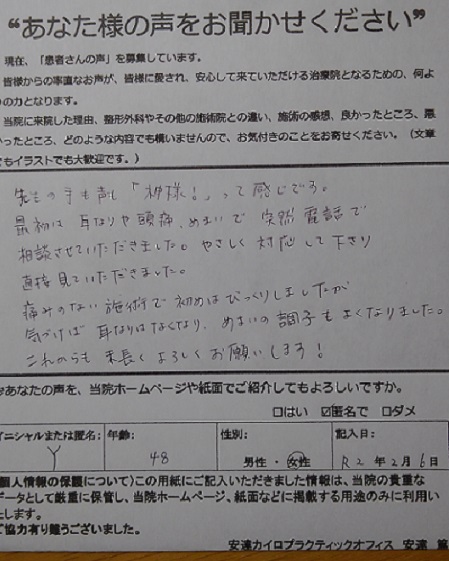 “あなた様の声をお聞かせください”
現在、「患者さんの声」を募集しています。
皆様からの率直なお声が、皆様に愛され、安心して来ていただける治療院となるための、何よ
りの力となります。
当院に来院した理由、整形外科やその他の施術院との違い、施術の感想、良かったところ、悪
かったところ、どのような内容でも構いませんので、お気付きのことをお寄せください。（文章
でもイラストでも大歓迎です。）
先生の手も声も「神様！」って感じです。
最初は耳なりや頭痛、めまいで突然電話で
相談させていただきました。やさしく対応して下さり
直接見ていただきました。
痛みのない施術で初めはびっくりしましたが
気づけば耳なりはなくなり、めまいの調子もよくなりました。
これからも末長くよろしくお願いします！
あなたの声を、当院ホームページや紙面でご紹介してもよろしいですか。
□はい ☑匿名で □ダメ
イニシャルまたは匿名: 年齢: 性別: 記入日:
Y 48 男性・女性 R2年2月6日
個人情報の保護について)この用紙にご記入いただきました情報は、当院の貴重な
データとして厳重に保管し、当院ホームページ、紙面などに掲載する用途のみに利用い
たします。
ご協力有り難うございました。
安達カイロプラクティックオフィス 安達 篤